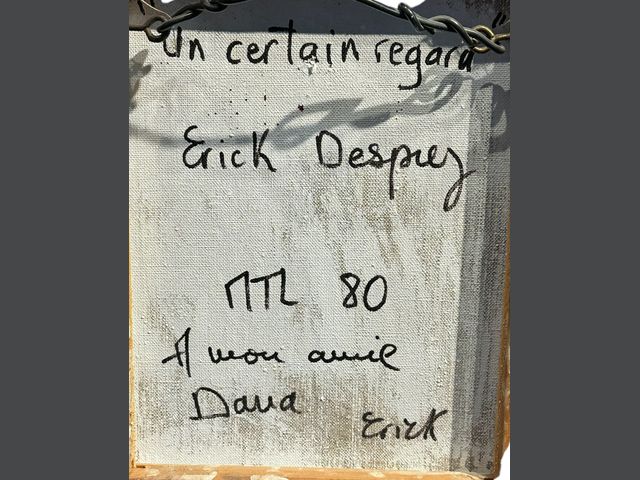 Un certain regard
Erick Desprez
MTL 80
A mon amie
Dana
Erick